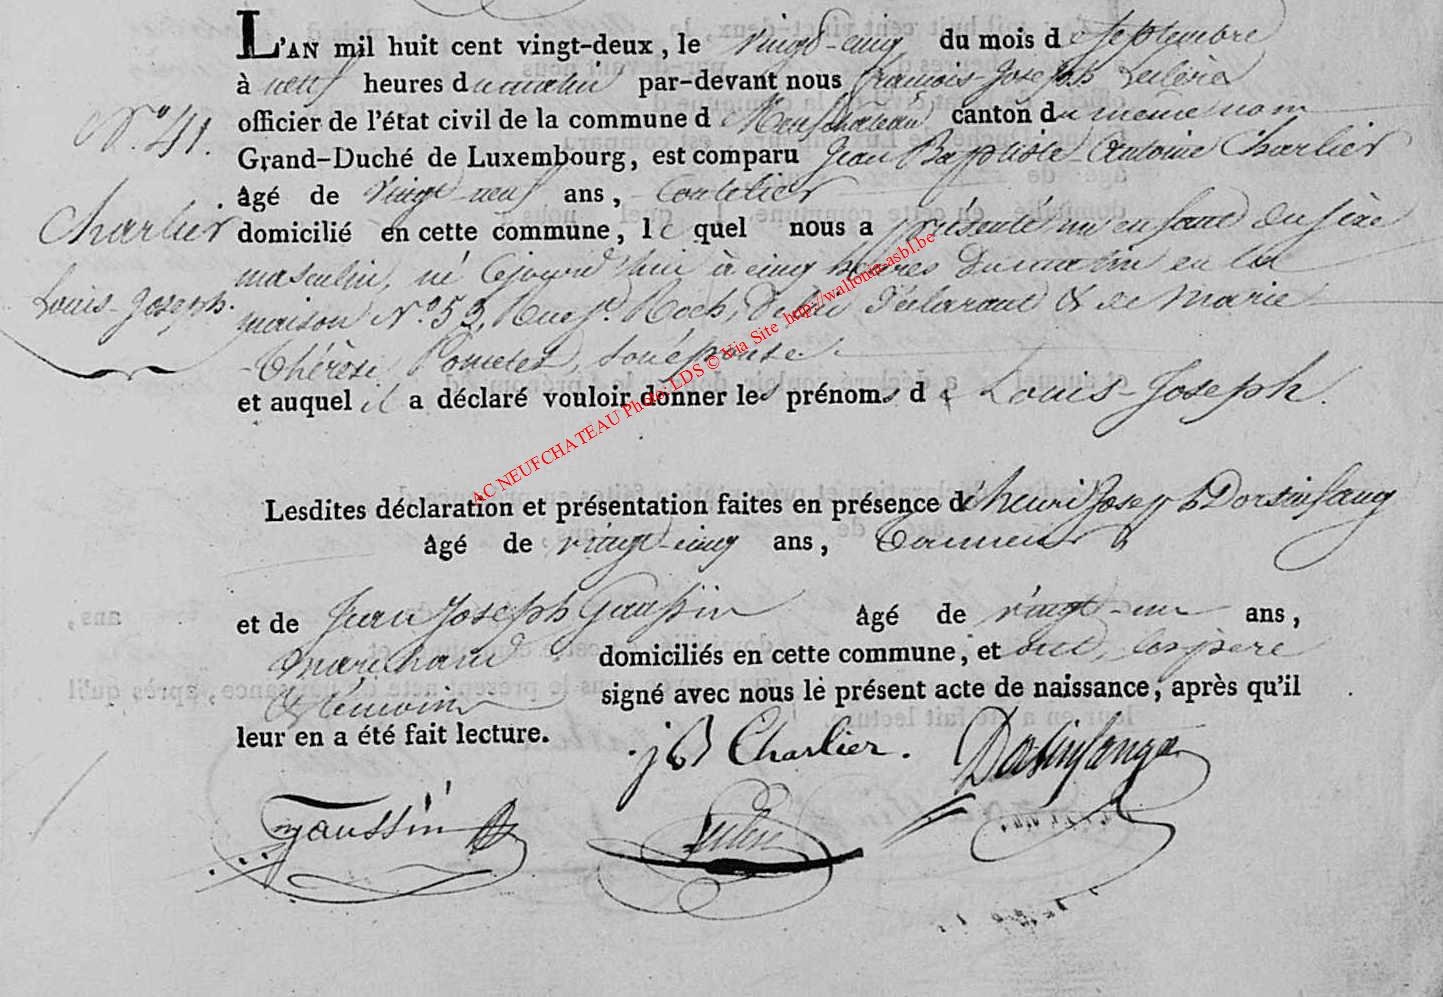 L'AN mil huit cent vingt-deux, le vingt-cinq du mois de Septembre
à neuf heures du matin par-devant nous francois-Joseph
officier de l'état civil de la commune d Neufchateau canton du même nom
N.º 41.
Grand-Duché de Luxembourg, est comparu Jean Baptiste Antoine Charlier
âgé de vingt-neuf ans, Coutelier
Charlier
domicilié en cette commune, le quel nous a présenté un enfant du sexe
masculin, né cejourd'hui à cinq heures du matin en la
Louis-Joseph.
maison Nº 53, Rue St. Roch, de lui déclarant & de Marie
Thérèse son épouse.
et auquel il a déclaré vouloir donner les prénoms de Louis-Joseph.
AC NEUFCHATEAU Photo LDS © Via Site http://wallonia-asbl.be
Lesdites déclaration et présentation faites en présence de henri Joseph
âgé de vingt-cinq ans, Tanneur
et de Jean Joseph Gaussin âgé de vingt-un ans,
marchand domiciliés en cette commune, et ont, les père
& témoins signé avec nous le présent acte de naissance, après qu'il
leur en a été fait lecture.
jB Charlier.
Gaussin